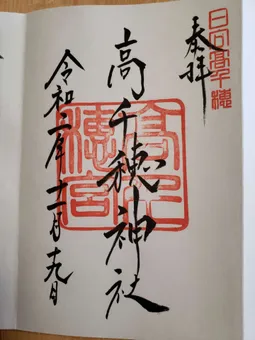 日向髙千穂
奉拝
高千穂神社
髙千
穗宮
令和二年十一月十九日